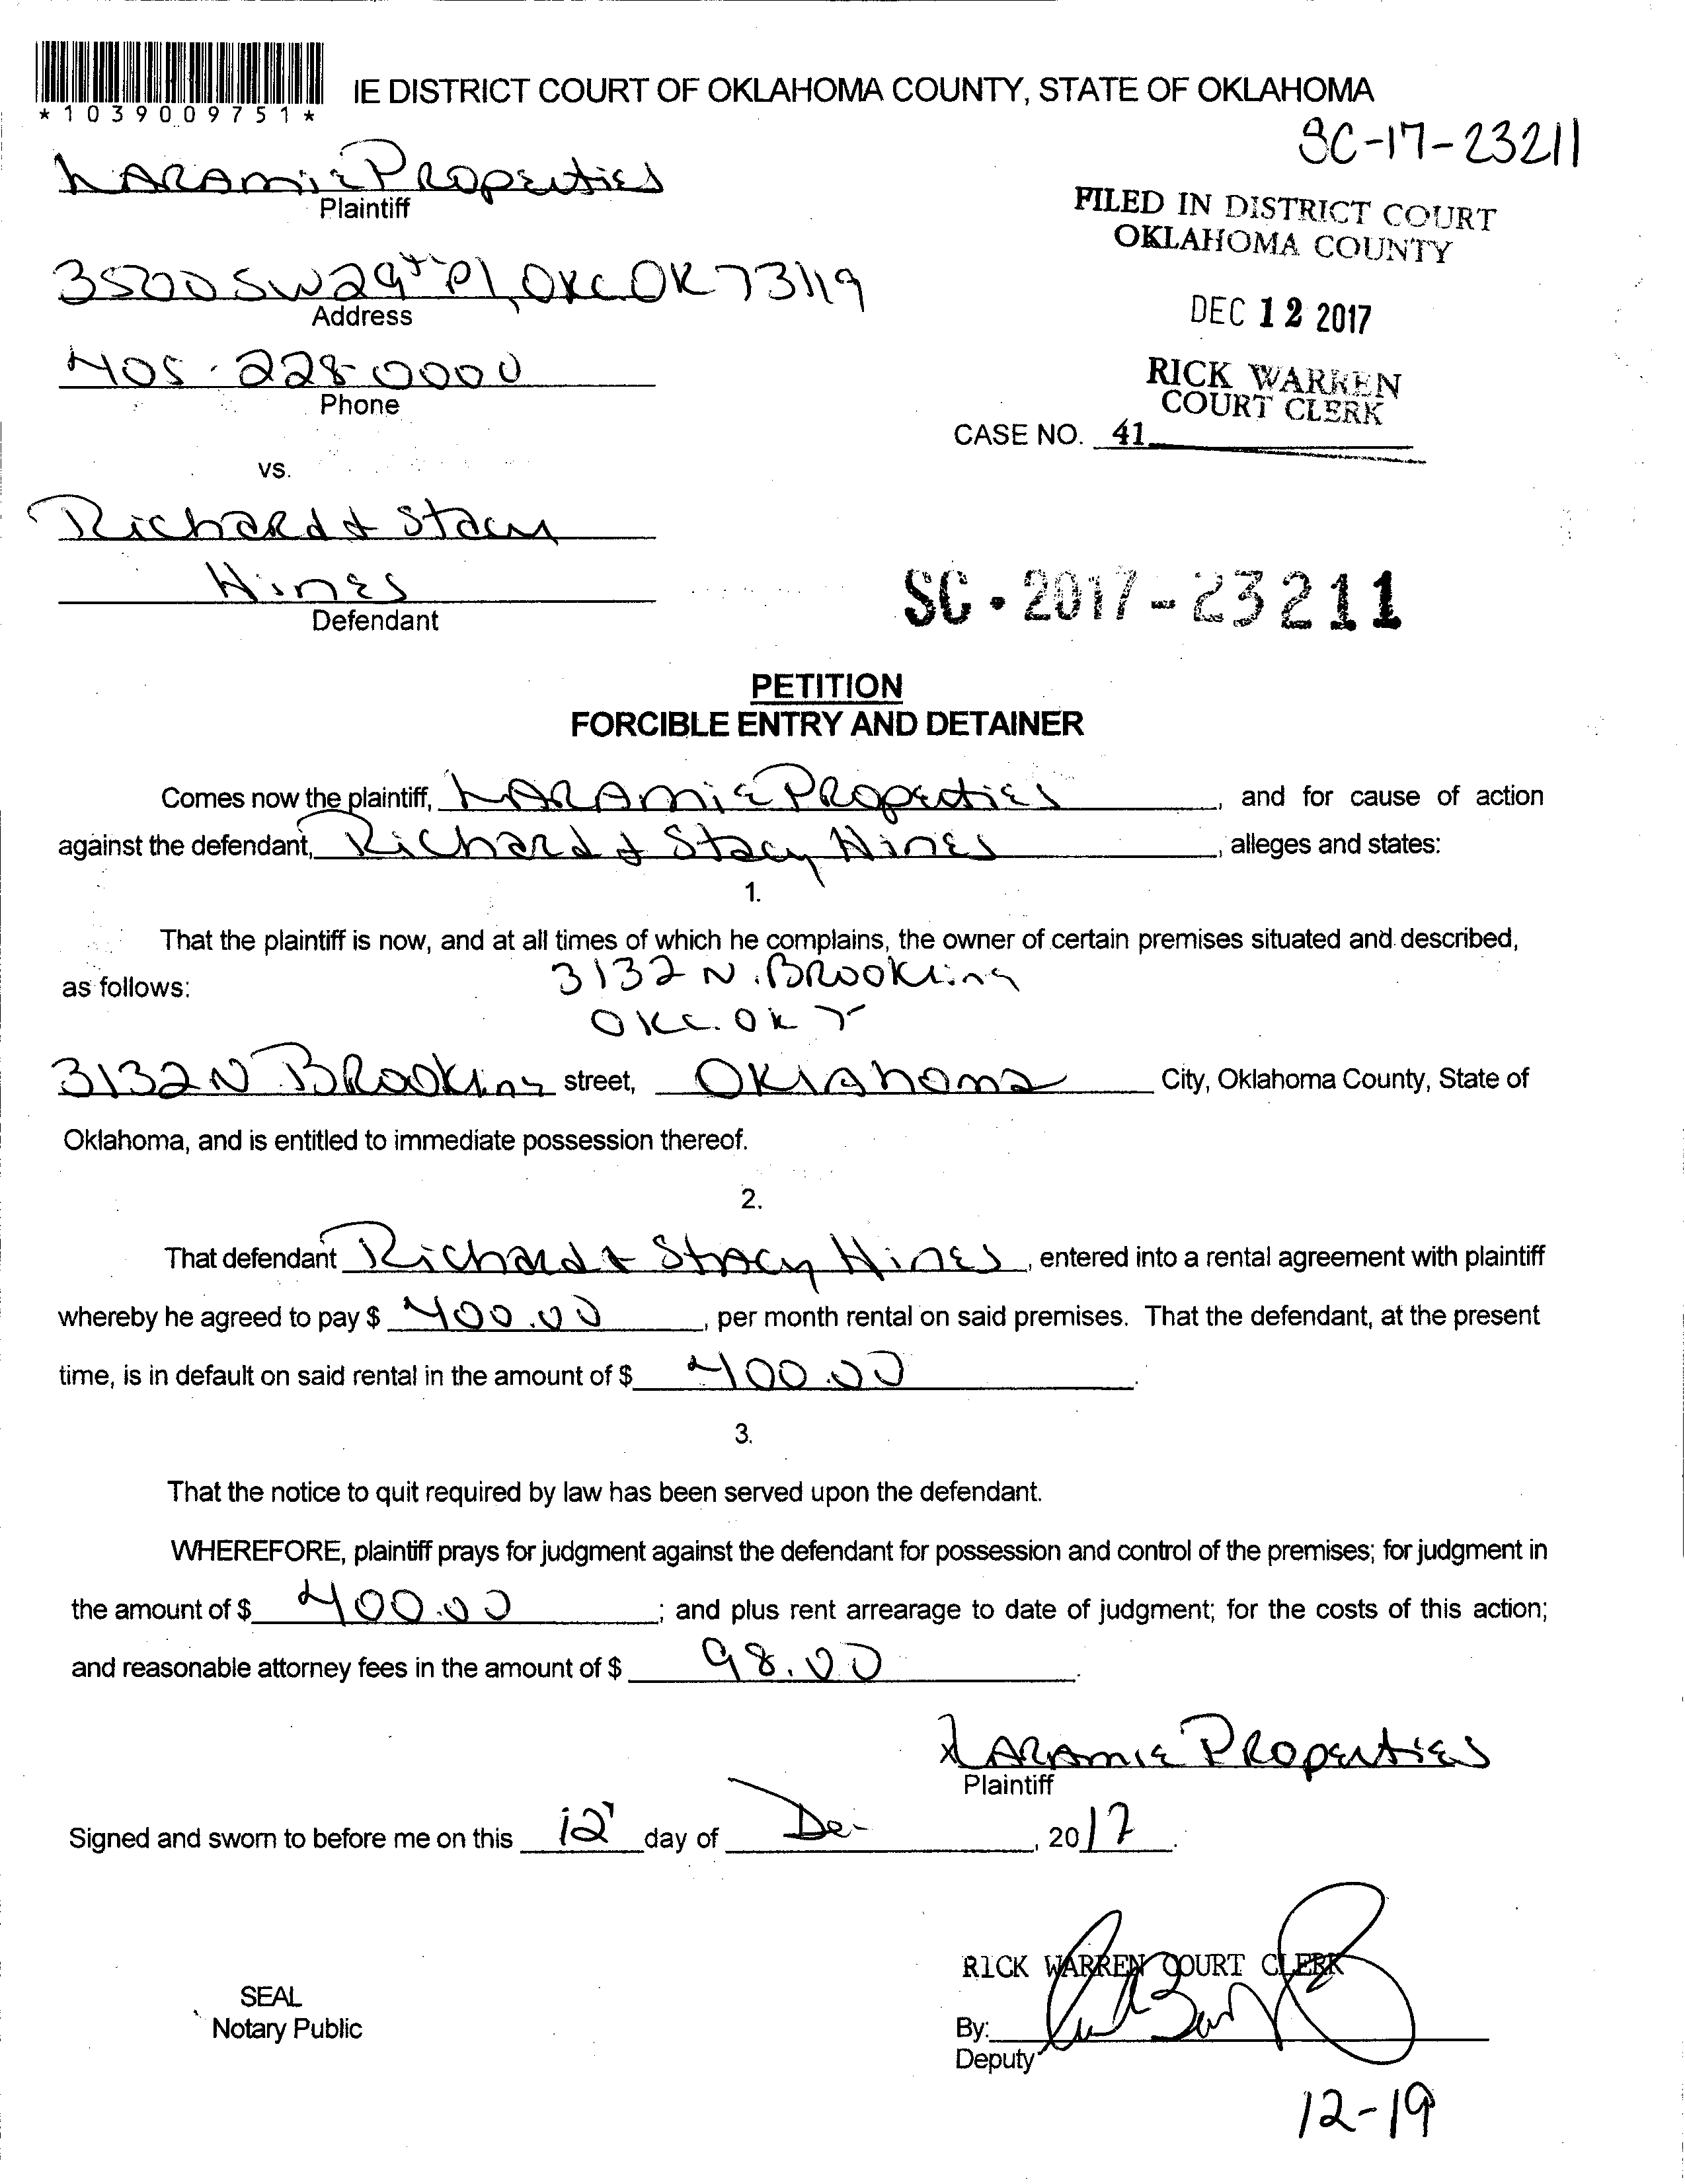 IE DISTRICT COURT OF OKLAHOMA COUNTY, STATE OF OKLAHOMA
*1039009751*
SC-17-23211
Laramie Properties
Plaintiff
FILED IN DISTRICT COURT
OKLAHOMA COUNTY
3500 SW 29th Pl, OKC OK 73119
Address
DEC 12 2017
405-228-0000
Phone
RICK WARREN
COURT CLERK
CASE NO. 41
vs.
Richard & Stacy
Hines
Defendant
SC-2017-23211
PETITION
FORCIBLE ENTRY AND DETAINER
Comes now the plaintiff, Laramie Properties, and for cause of action
against the defendant, Richard & Stacy Hines, alleges and states:
1.
That the plaintiff is now, and at all times of which he complains, the owner of certain premises situated and described,
as follows: 3132 N. Brookline
OKC. OK
3132 N Brookline street, Oklahoma City, Oklahoma County, State of
Oklahoma, and is entitled to immediate possession thereof.
2.
That defendant Richard & Stacy Hines, entered into a rental agreement with plaintiff
whereby he agreed to pay $ 400.00, per month rental on said premises. That the defendant, at the present
time, is in default on said rental in the amount of $ 400.00.
3.
That the notice to quit required by law has been served upon the defendant.
WHEREFORE, plaintiff prays for judgment against the defendant for possession and control of the premises; for judgment in
the amount of $ 400.00; and plus rent arrearage to date of judgment; for the costs of this action;
and reasonable attorney fees in the amount of $ 98.00.
x Laramie Properties
Plaintiff
Signed and sworn to before me on this 12 day of Dec, 2017.
RICK WARREN COURT CLERK
SEAL
Notary Public
By:
Deputy
12-19